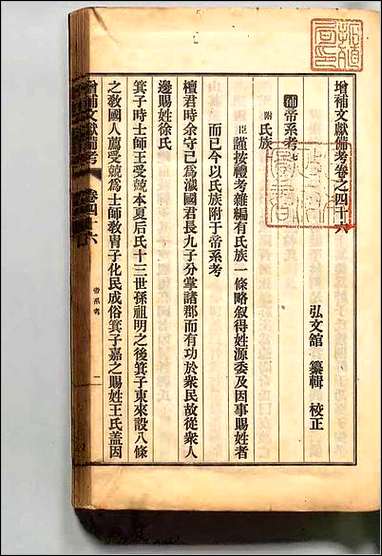 增補文獻備考卷之四十六
弘文館 纂輯 校正
補帝系考七
附氏族
臣謹按禮考雜編有氏族一條略叙得姓源委及因事賜姓者
而已今以氏族附于帝系考
檀君時余守己爲濊國君長九子分掌諸郡而有功於衆民故從衆人
邊賜姓徐氏
箕子時士師王受兢本夏后氏十三世孫祖明之後箕子東來設八條
之敎國人薦受兢爲士師敎冑子化民成俗箕子嘉之賜姓王氏盖因
增補文獻備考 卷四十六 帝系考 一